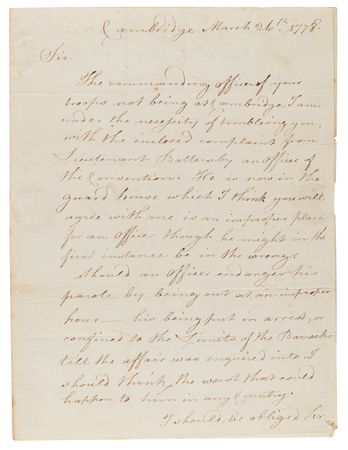 Cambridge March 26th. 1778.
Sir
The commanding officer of your
troops not being at Cambridge I am
under the necessity of troubling you,
with the inclosed complaint from
Lieutenant Battersby an Officer of
the Convention: He is now in the
guard house which I think you will
agree with me is an improper place
for an Officer though he might in the
first instance be in the wrong.
Should an Officer endanger his
parole by being out at an improper
hour — his being put in arrest, or
confined to the Limits of the Barracks
till the affair was enquired into I
should think the worst that could
happen to him in any Country.
I should be obliged Sir